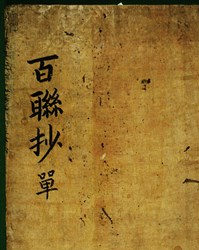 百聯抄 單